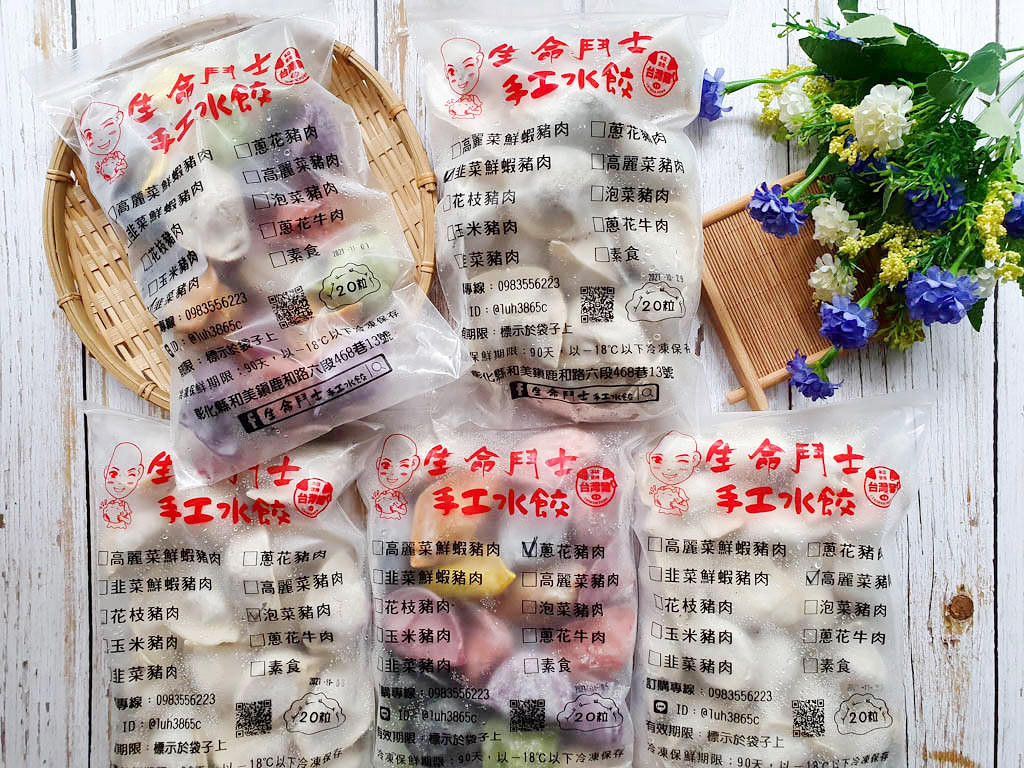 生命鬥士
手工水餃
台灣豬
高麗菜鮮蝦豬肉 蔥花豬肉
韭菜鮮蝦豬肉 高麗菜豬肉
花枝豬肉 泡菜豬肉
玉米豬肉 蔥花牛肉
韭菜豬肉 素食
專線：0983556223
ID：@luh3865c
20粒
期限：標示於袋子上
冷凍保鮮期限：90天，以－18℃以下冷凍保存
彰化縣和美鎮鹿和路六段468巷13號
生命鬥士手工水餃
生命鬥士
手工水餃
台灣豬
高麗菜鮮蝦豬肉 蔥花豬肉
韭菜鮮蝦豬肉 高麗菜豬肉
花枝豬肉 泡菜豬肉
玉米豬肉 蔥花牛肉
韭菜豬肉 素食
專線：0983556223
2021-10-29
ID：@luh3865c
20粒
期限：標示於袋子上
保鮮期限：90天，以－18℃以下冷凍保存
彰化縣和美鎮鹿和路六段468巷13號
生命鬥士手工水餃
生命鬥士
手工水餃
台灣豬
高麗菜鮮蝦豬肉 蔥花豬肉
韭菜鮮蝦豬肉 高麗菜豬肉
花枝豬肉 泡菜豬肉
玉米豬肉 蔥花牛肉
韭菜豬肉 素食
專線：0983556223
ID：@luh3865c
20粒
期限：標示於袋子上
冷凍保鮮期限：90天，以－18℃以下冷凍保存
生命鬥士
手工水餃
台灣豬
高麗菜鮮蝦豬肉 蔥花豬肉
韭菜鮮蝦豬肉 高麗菜豬肉
花枝豬肉 泡菜豬肉
玉米豬肉 蔥花牛肉
韭菜豬肉 素食
購專線：0983556223
ID：@luh3865c
20粒
有效期限：標示於袋子上
冷凍保鮮期限：90天，以－18℃以下冷凍保存
生命鬥士
手工水餃
台灣豬
高麗菜鮮蝦豬肉 蔥花豬肉
韭菜鮮蝦豬肉 高麗菜豬肉
花枝豬肉 泡菜豬肉
玉米豬肉 蔥花牛肉
韭菜豬肉 素食
訂購專線：0983556223
ID：@luh3865c
20粒
有效期限：標示於袋子上
冷凍保鮮期限：90天，以－18℃以下冷凍保存